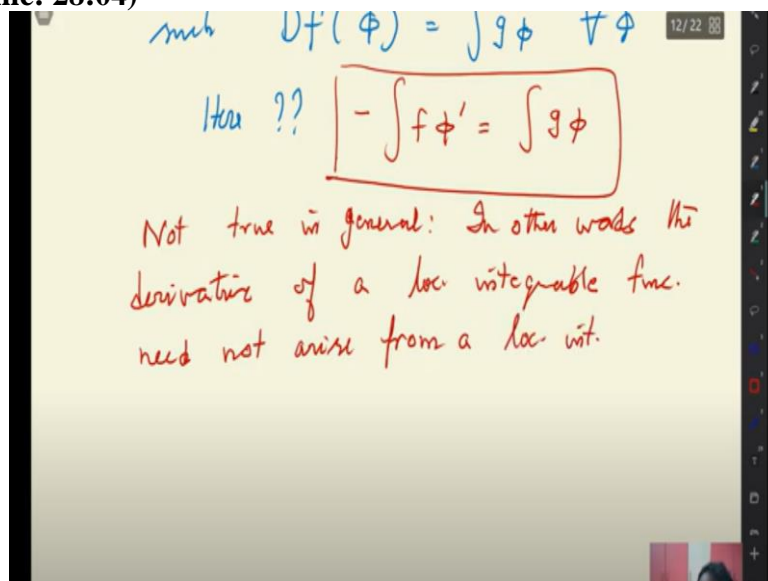 such Df(φ) = ∫gφ ∀ φ
12/22
Here ?? -∫fφ' = ∫gφ
Not true in general: In other words the
derivative of a loc. integrable func.
need not arise from a loc. int.